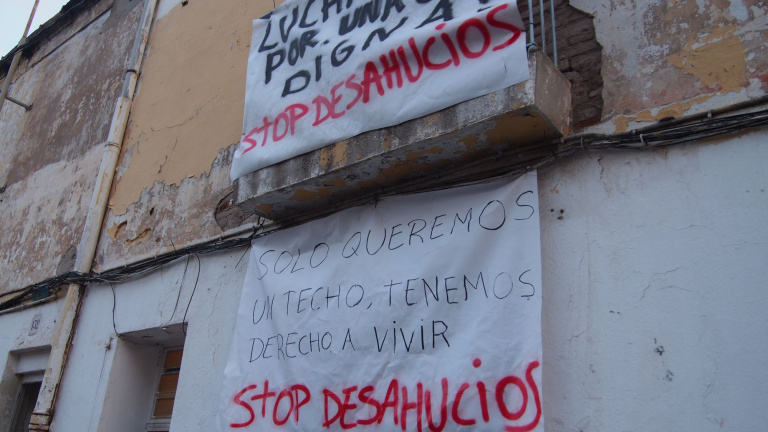 LUCHA
POR UNA
DIGNA
STOP DESAHUCIOS
SOLO QUEREMOS
UN TECHO, TENEMOS
DERECHO A VIVIR
STOP DESAHUCIOS